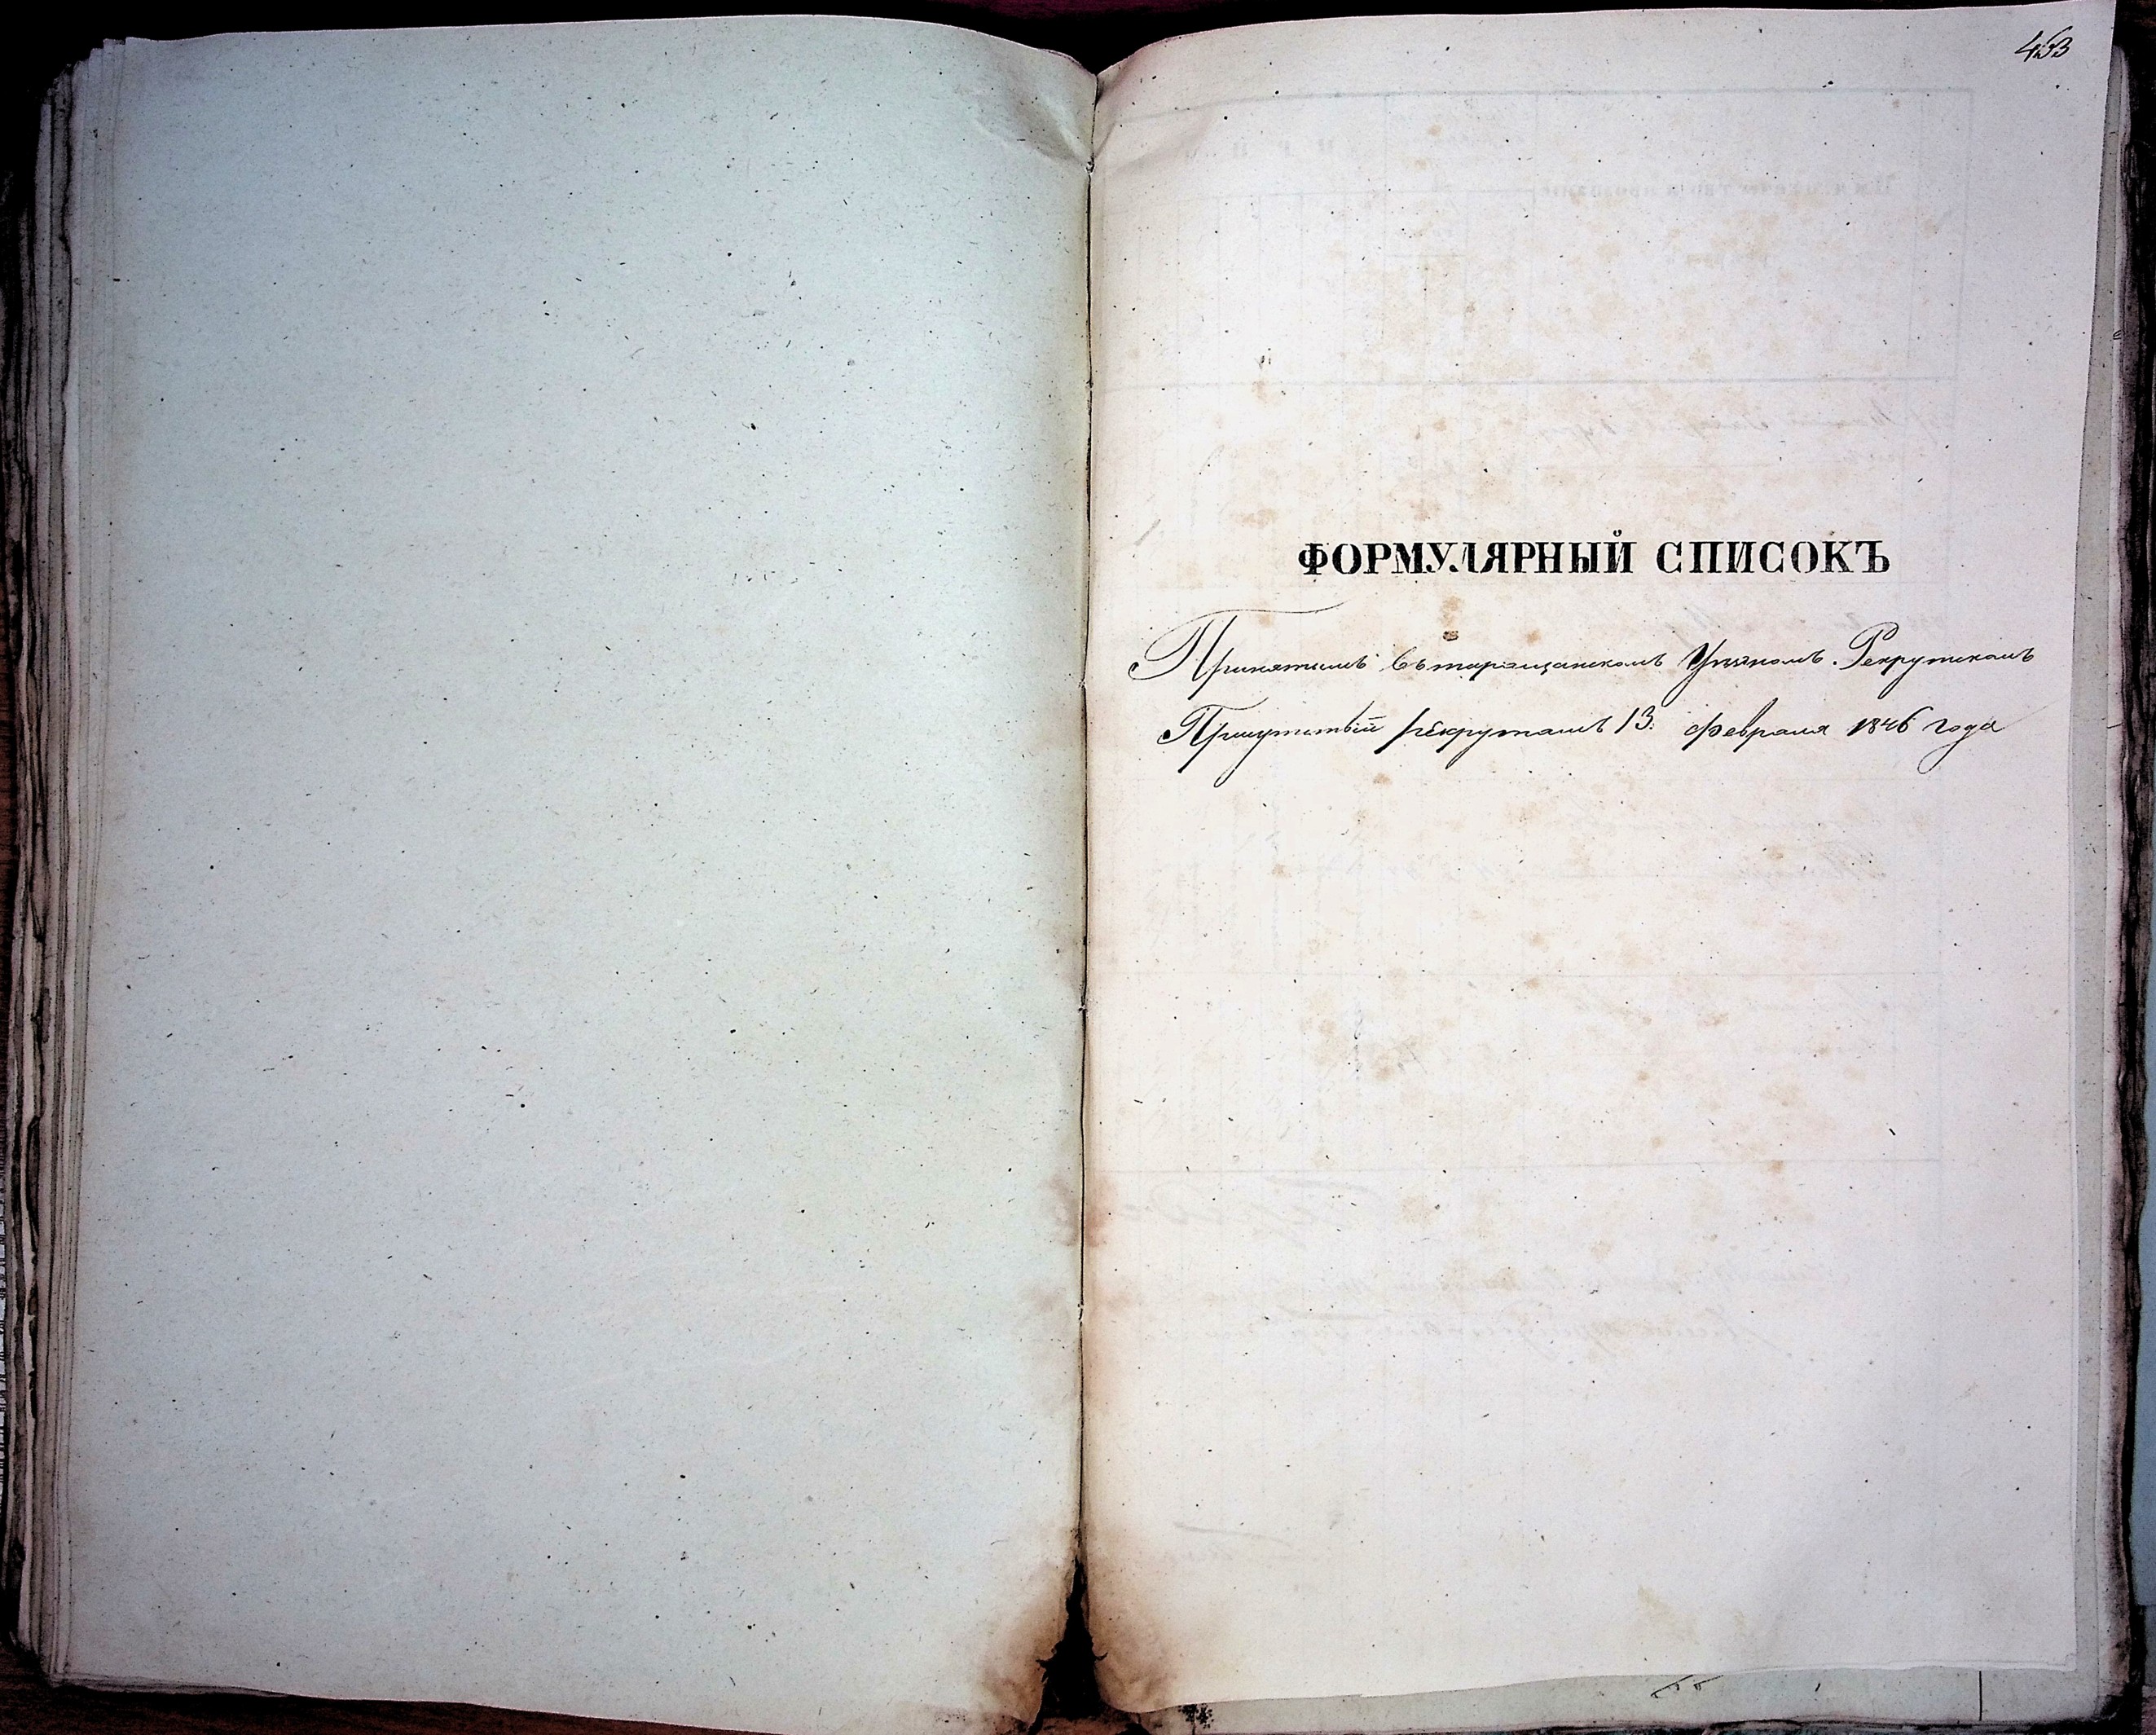 453
ФОРМУЛЯРНЫЙ СПИСОКЪ
Принятымъ въ таращанскомъ Уѣзномъ Рекрутскомъ
Присутствій рекрутамъ 13. февраля 1846 года